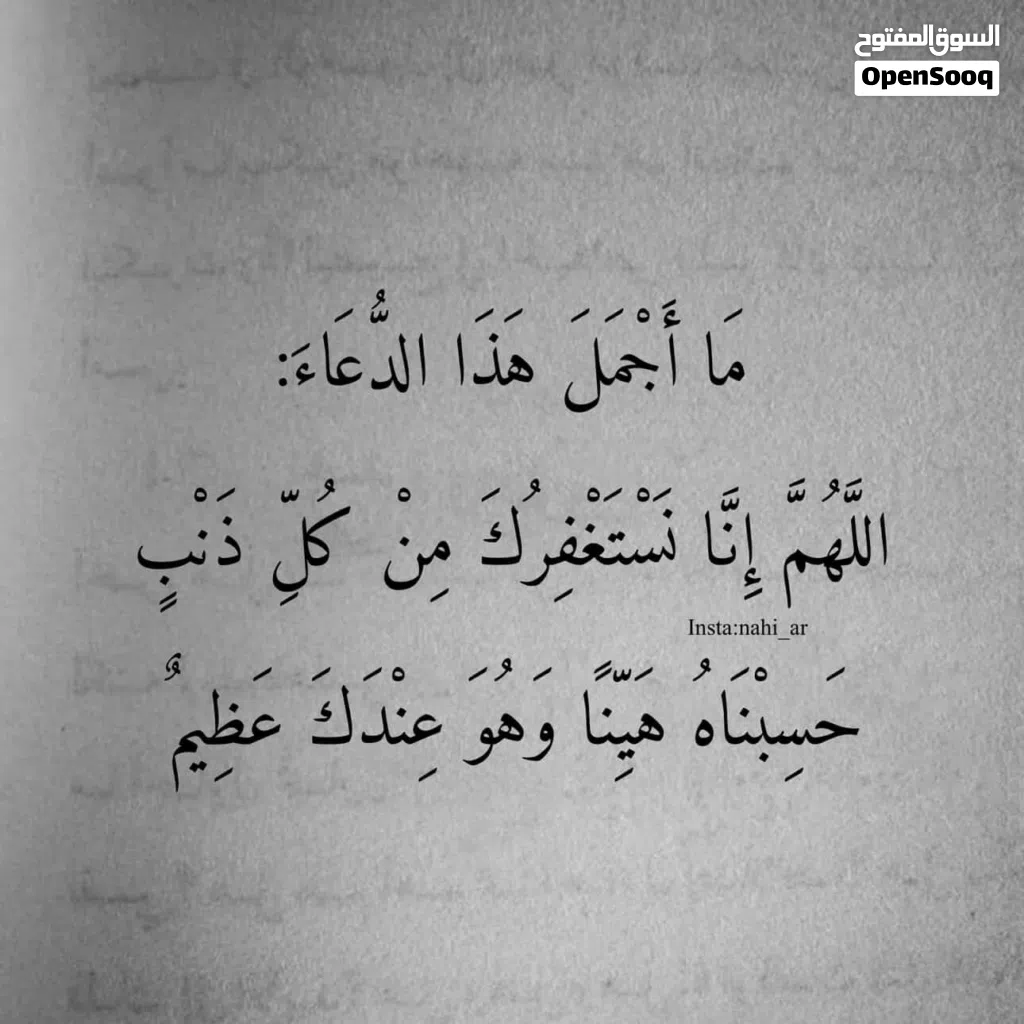 السوق المفتوح
OpenSooq
مَا أَجْمَلَ هَذَا الدُّعَاءَ:
اللَّهُمَّ إِنَّا نَسْتَغْفِرُكَ مِنْ كُلِّ ذَنْبٍ
Insta:nahi_ar
حَسِبْنَاهُ هَيِّنًا وَهُوَ عِنْدَكَ عَظِيمٌ